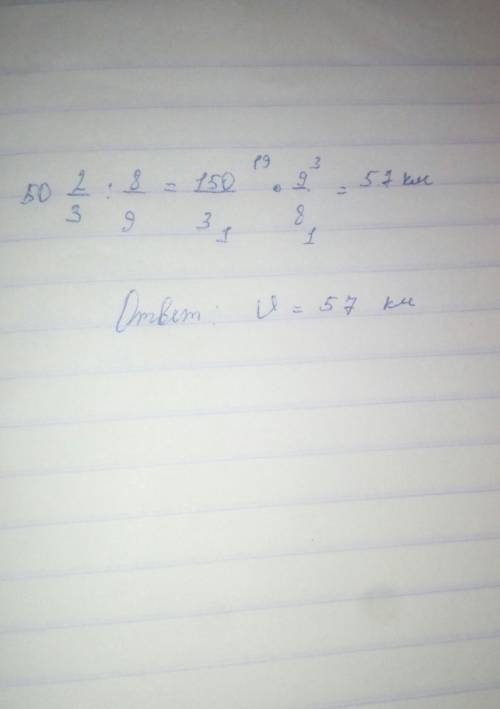 50 2/3 : 8/9 = 150/3 19 1 • 9/8 3 1 = 57 км
Ответ: V = 57 км